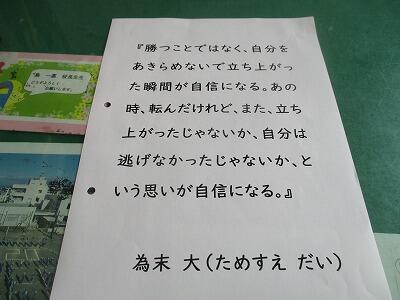 『勝つことではなく、自分を
あきらめないで立ち上がっ
た瞬間が自信になる。あの
時、転んだけれど、また、立ち
上がったじゃないか、自分は
逃げなかったじゃないか、と
いう思いが自信になる。』
為末 大(ためすえ だい)